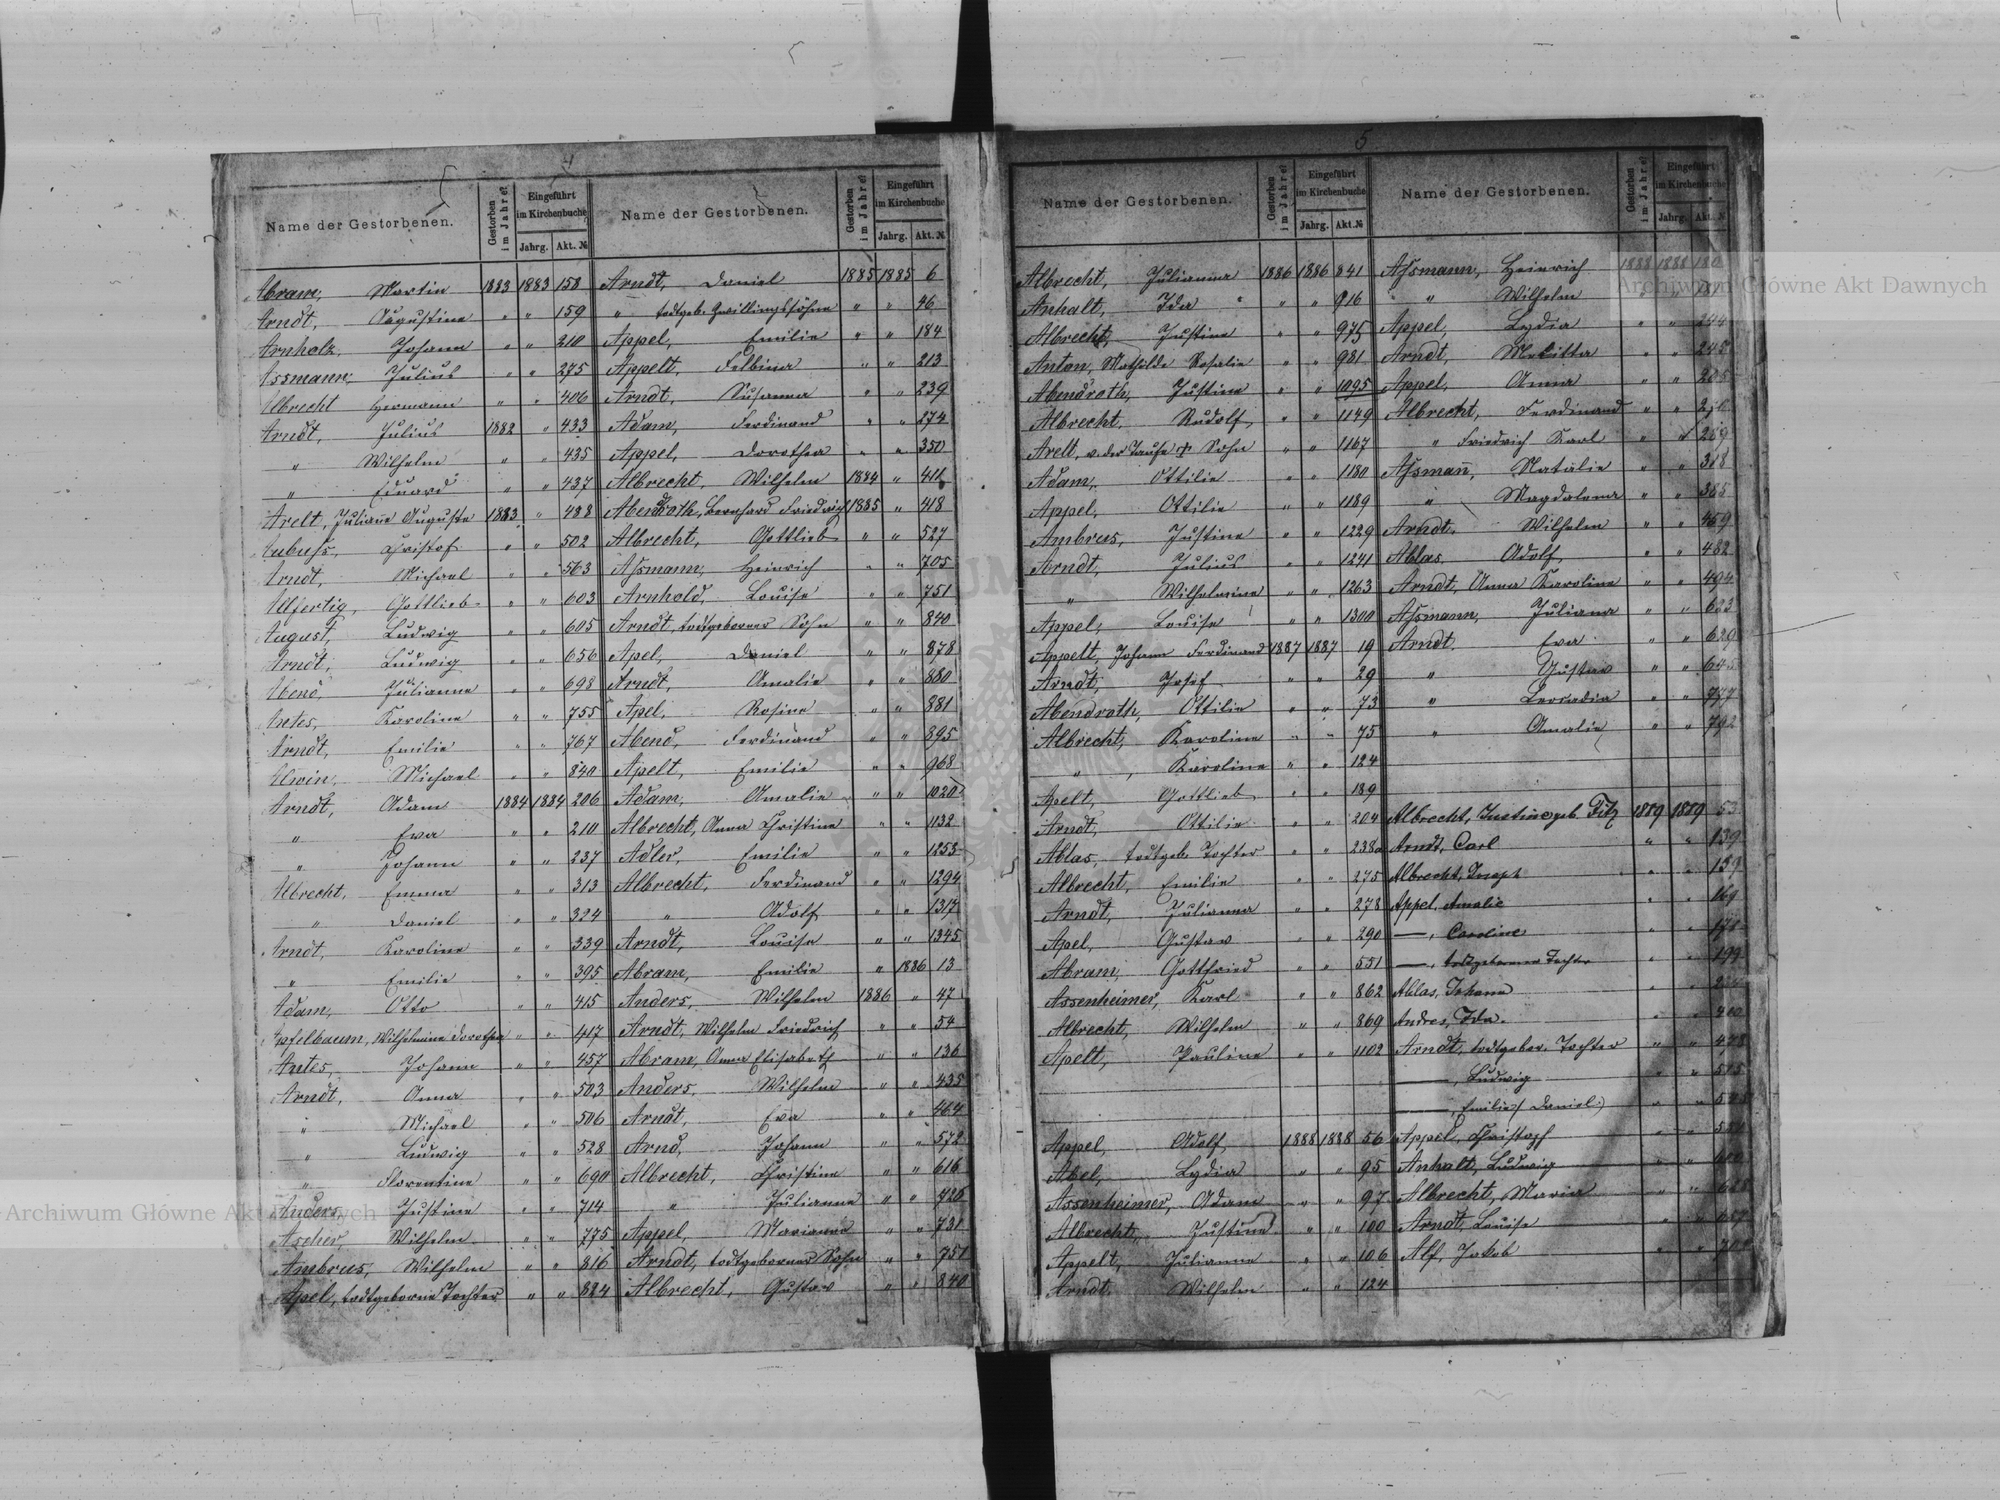 4
Name der Gestorbenen. Gestorben im Jahre Eingeführt im Kirchenbuche Jahrg. Akt. №
Abram, Martin 1883 1883 158
Arndt, Augustine " " 159
Arnholz, Johann " " 210
Assmann, Julius " " 275
Albrecht Hermann " " 406
Arndt, Julius 1882 " 433
" Wilhelm " " 435
" Eduard " " 437
Arelt, Julianne Auguste 1883 " 488
Christof " " 502
Arndt, Michael " " 563
Ulfertig, Gottlieb " " 603
August, Ludwig " " 605
Arndt, Ludwig " " 656
Abend, Julianne " " 698
Antes, Karoline " " 755
Arndt, Emilie " " 767
Alwin, Michael " " 840
Arndt, Adam 1884 1884 206
" Eva " " 210
" Johann " " 237
Albrecht, Emma " " 313
" Daniel " " 324
Arndt, Karoline " " 339
" Emilie " " 395
Adam, Otto " " 415
Apfelbaum, Wilhelmine Dorothea " " 417
Antes, Johann " " 457
Arndt, Anna " " 503
" Michael " " 506
" Ludwig " " 528
" Florentine " " 690
Anders, Justine " " 714
Ascher, Wilhelm " " 775
Ambrus, Wilhelm " " 816
Apel, todtgeborne Tochter " " 884
Name der Gestorbenen. Gestorben im Jahre Eingeführt im Kirchenbuche Jahrg. Akt. №
Arndt, Daniel 1885 1885 6
" todtgeb. Zwillingssöhne " " 46
Appel, Emilie " " 184
Appelt, Felbina " " 213
Arndt, Susanna " " 239
Adam, Ferdinand " " 274
Appel, Dorothea " " 350
Albrecht, Wilhelm 1884 " 411
Abendroth, Bernhard Friedrich 1885 " 418
Albrecht, Gottlieb " " 527
Assmann, Heinrich " " 705
Arnhold, Louise " " 751
Arndt, todtgeborner Sohn " " 840
Apel, Daniel " " 878
Arndt, Amalie " " 880
Apel, Rosine " " 881
Abend, Ferdinand " " 895
Apelt, Emilie " " 968
Adam, Amalie " " 1020
Albrecht, Anna Christine " " 1132
Adler, Emilie " " 1253
Albrecht, Ferdinand " " 1294
" Adolf " " 1317
Arndt, Louise " " 1345
Abram, Emilie " 1886 13
Anders, Wilhelm 1886 " 47
Arndt, Wilhelm Friedrich " " 54
Abram, Anna Elisabeth " " 136
Anders, Wilhelm " " 435
Arndt, Eva " " 464
Arnd, Johann " " 572
Albrecht, Christine " " 616
" Julianne " " 726
Appel, Marianna " " 731
Arndt, todtgeborner Sohn " " 751
Albrecht, Gustav " " 840
5
Name der Gestorbenen. Gestorben im Jahre Eingeführt im Kirchenbuche Jahrg. Akt. №
Albrecht, Julianna 1886 1886 841
Anhalt, Ida " " 916
Albrecht, Justine " " 975
Anton, Mathilde Rosalie " " 981
Abendroth, Justine " " 1095
Albrecht, Rudolf " " 1149
Arelt, v. der Taufe † Sohn " " 1167
Adam, Ottilie " " 1180
Appel, Ottilie " " 1189
Ambrus, Justine " " 1229
Arndt, Julius " " 1241
" Wilhelmine " " 1263
Appel, Louise " " 1300
Appelt, Johann Ferdinand 1887 1887 19
Arndt, Josef " " 29
Abendroth, Ottilie " " 73
Albrecht, Karoline " " 75
" , Karoline " " 124
Apelt, Gottlieb " " 189
Arndt, Ottilie " " 204
Ablas, todtgeb. Tochter " " 238a
Albrecht, Emilie " " 275
Arndt, Julianna " " 278
Apel, Gustav " " 290
Abram, Gottfried " " 551
Assenheimer, Karl " " 862
Albrecht, Wilhelm " " 869
Apelt, Pauline " " 1102
Appel, Adolf 1888 1888 56
Abel, Lydia " " 95
Assenheimer, Adam " " 97
Albrecht, Justine " " 100
Appelt, Julianne " " 106
Arndt, Wilhelm " " 124
Name der Gestorbenen. Gestorben im Jahre Eingeführt im Kirchenbuche Jahrg. Akt. №
Assmann, Heinrich 1888 1888 180
" Wilhelm " " 181
Appel, Lydia " " 244
Arndt, Melitta " "
Appel, Anna " "
Albrecht, Ferdinand " "
" Friedrich Karl " " 289
Assmann, Natalie " " 318
" Magdalena " " 385
Arndt, Wilhelm " " 459
Ablas Adolf " " 482
Arndt, Anna Karoline " " 494
Assmann, Juliana " " 623
Arndt, Eva " " 629
" Gustav " " 645
" Leocadia " " 777
" Amalie " " 792
Albrecht, Justine geb. Fitz 1889 1889 53
Arndt, Carl " " 139
Albrecht, Joseph " " 159
Appel, Amalie " " 169
—, Caroline " " 171
—, todtgeborne Tochter " " 199
Ablas, Johann " "
Andres, Ida. " "
Arndt, todtgebor. Tochter " " 478
—, Ludwig " "
—, Emilie (Daniel:) " "
Appel, Christoph " "
Anhalt, Ludwig " "
Albrecht, Maria " "
Arndt, Louise " "
Alf, Jakob " "
Archiwum Główne Akt Dawnych
Archiwum Główne Akt Dawnych